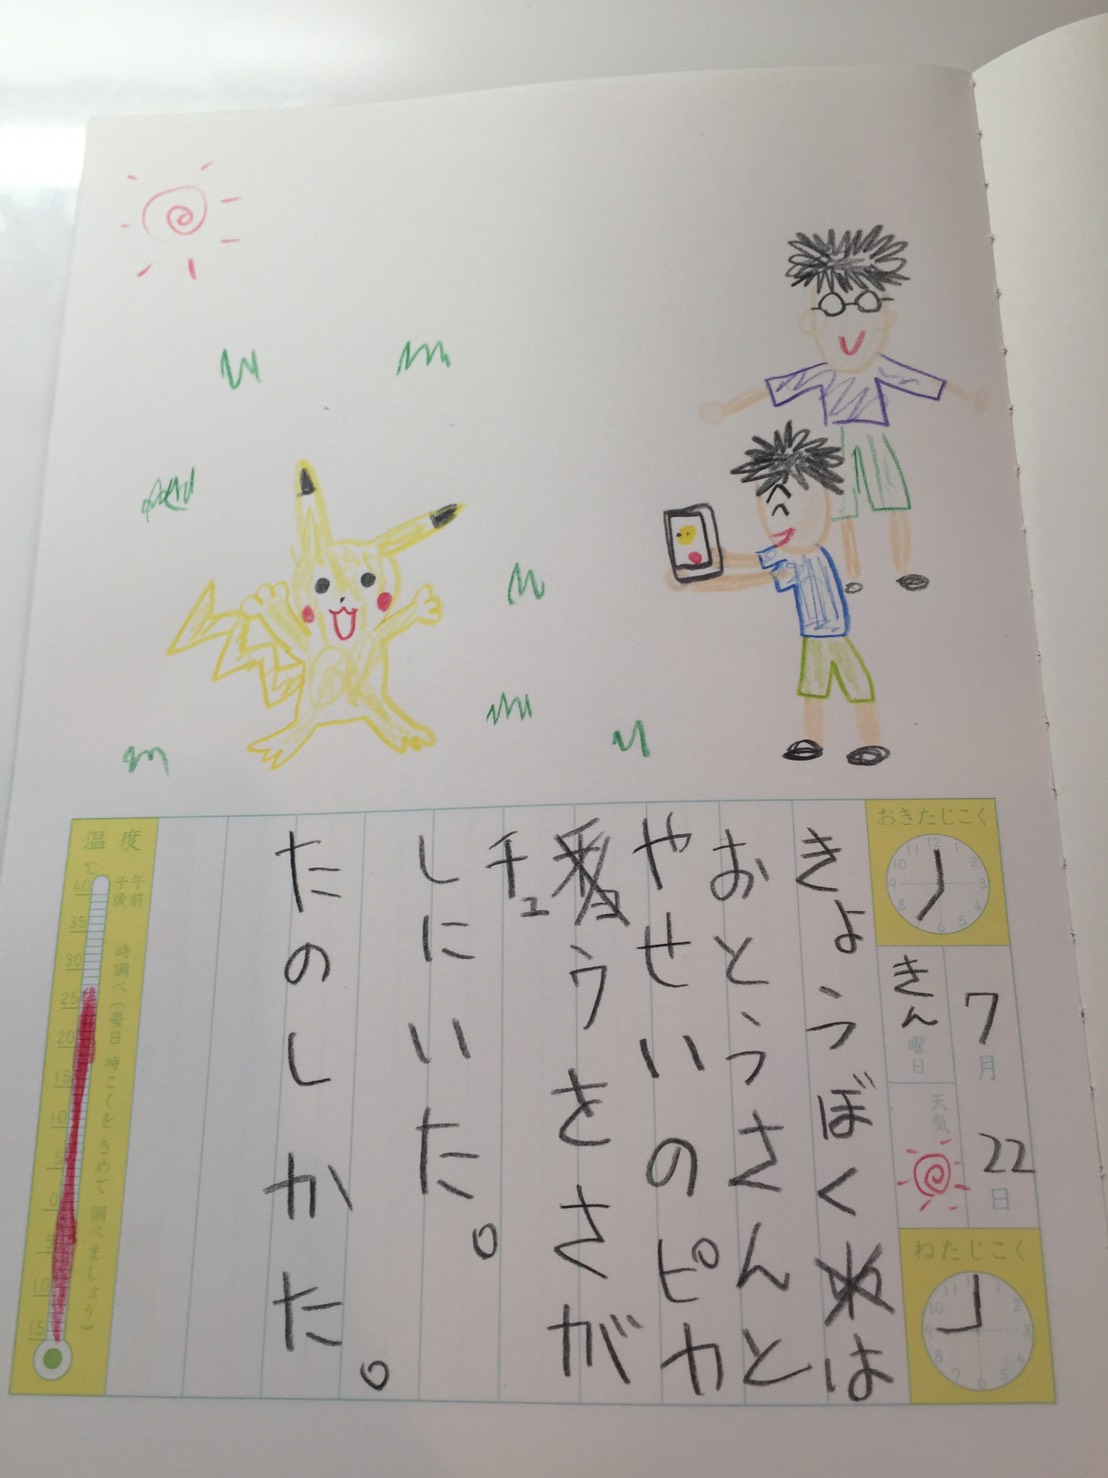 おきたじこく
12
11
10
9
8
7
6
3
7月22日
きん曜日
天気
ねたじこく
きょうぼくは
おとうさんと
やせいのピカ
チュウをさが
しにいた。
たのしかた。
温度
℃
午前
午後
時調べ(毎日 時こくを きめて 調べましょう)
40
35
30
25
20
15
10
5
0
5
10
15